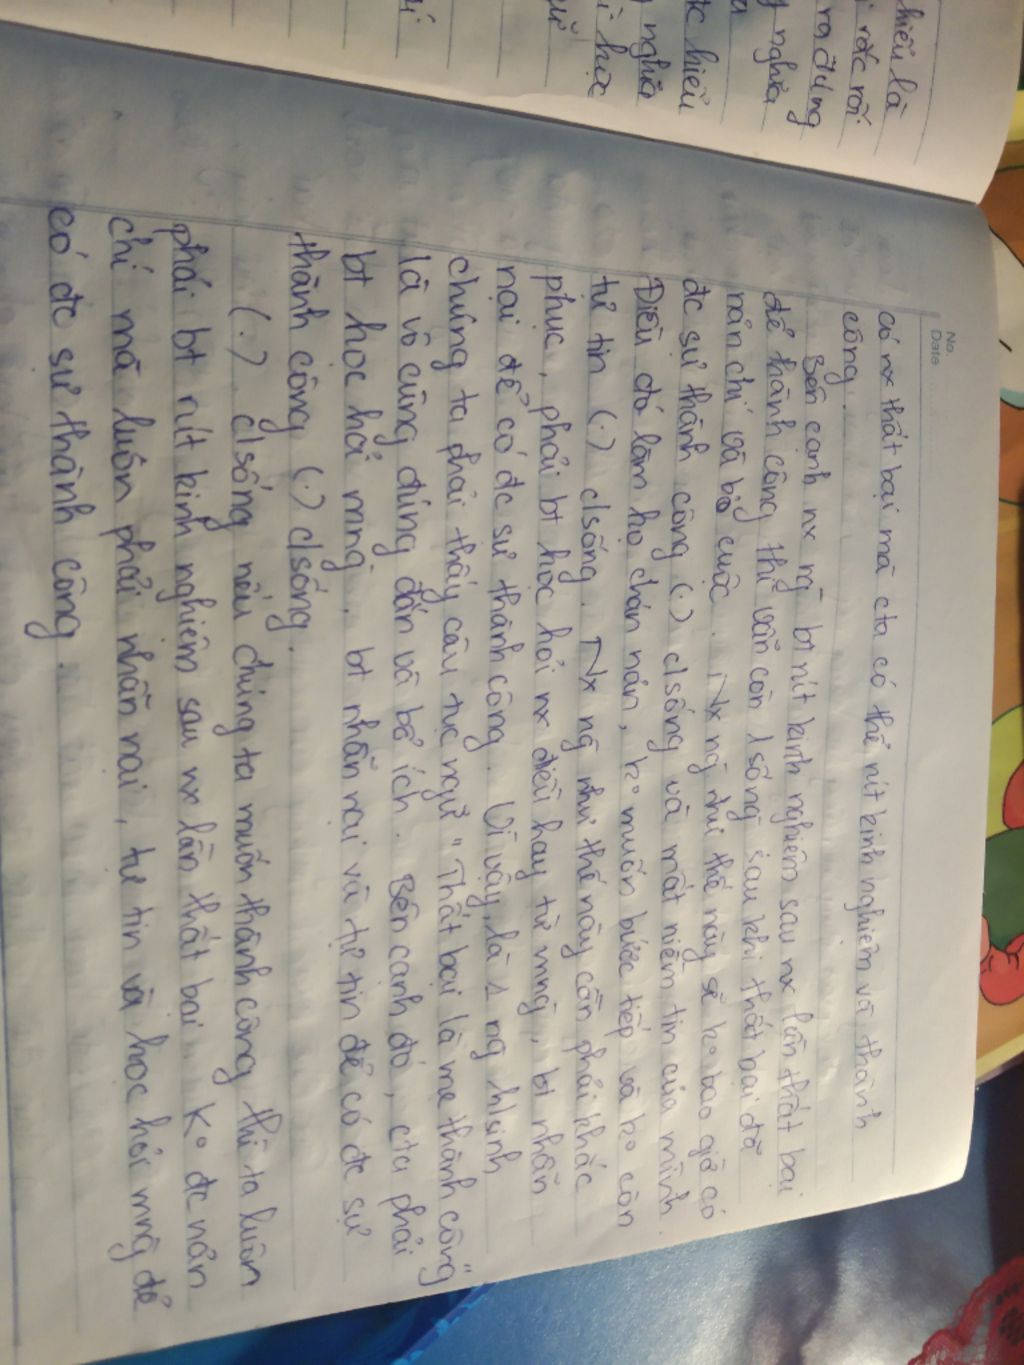 hiểu là
rắc rối
ra đúng
nghĩa
đc hiểu
nghĩa
học
No.
Date
có nx thất bại mà cta có thể rút kinh nghiệm và thành
công.
Bên cạnh nx ng̃ bt rút kinh nghiệm sau nx lần thất bại
để thành công thì vẫn còn 1 số ng̃ sau khi thất bại đã
nản chí và bỏ cuộc. Nx ng̃ như thế này sẽ ko bao giờ có
đc sự thành công (.) c/sống và mất niềm tin của mình.
Điều đó làm họ chán nản, ko muốn bước tiếp và ko còn
tự tin (.) c/sống. Nx ng̃ như thế này cần phải khắc
phục, phải bt học hỏi nx điều hay từ mng̃, bt nhẫn
nại để có đc sự thành công. Vì vậy, là 1 ng h/sinh
chúng ta phải thấy câu tục ngữ "Thất bại là mẹ thành công"
là vô cùng đúng đắn và bổ ích. Bên cạnh đó, cta phải
bt học hỏi mng̃, bt nhẫn nại và tự tin để có đc sự
thành công (.) c/sống.
(.) c/sống nếu chúng ta muốn thành công thì ta luôn
phải bt rút kinh nghiệm sau nx lần thất bại. Ko đc nản
chí mà luôn phải nhẫn nại, tự tin và học hỏi mng̃ để
có đc sự thành công.